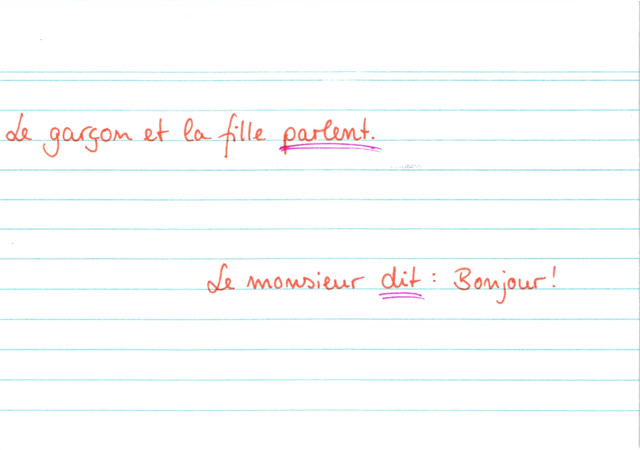 Le garçon et la fille parlent.
Le monsieur dit : Bonjour !